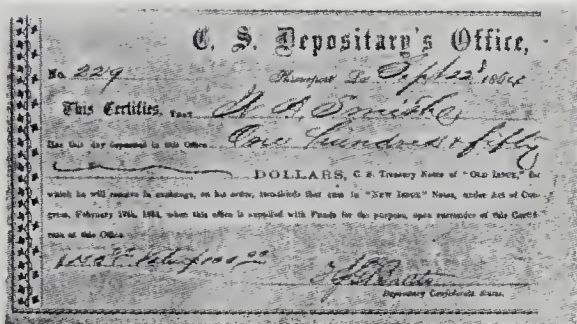 C. S. Depositary's Office,
No. 229 Shreveport La Sept 22d 1864
This Certifies, THAT W. B. Smith
Has this day deposited in this Office One hundred & fifty
DOLLARS, C. S. Treasury Notes of "OLD ISSUE," for
which he will receive in exchange, on his order, two-thirds that sum in "NEW ISSUE" Notes, under Act of Con-
gress, February 17th, 1864, when this office is supplied with Funds for the purpose, upon surrender of this Certifi-
cate at this Office
Depositary Confederate States.